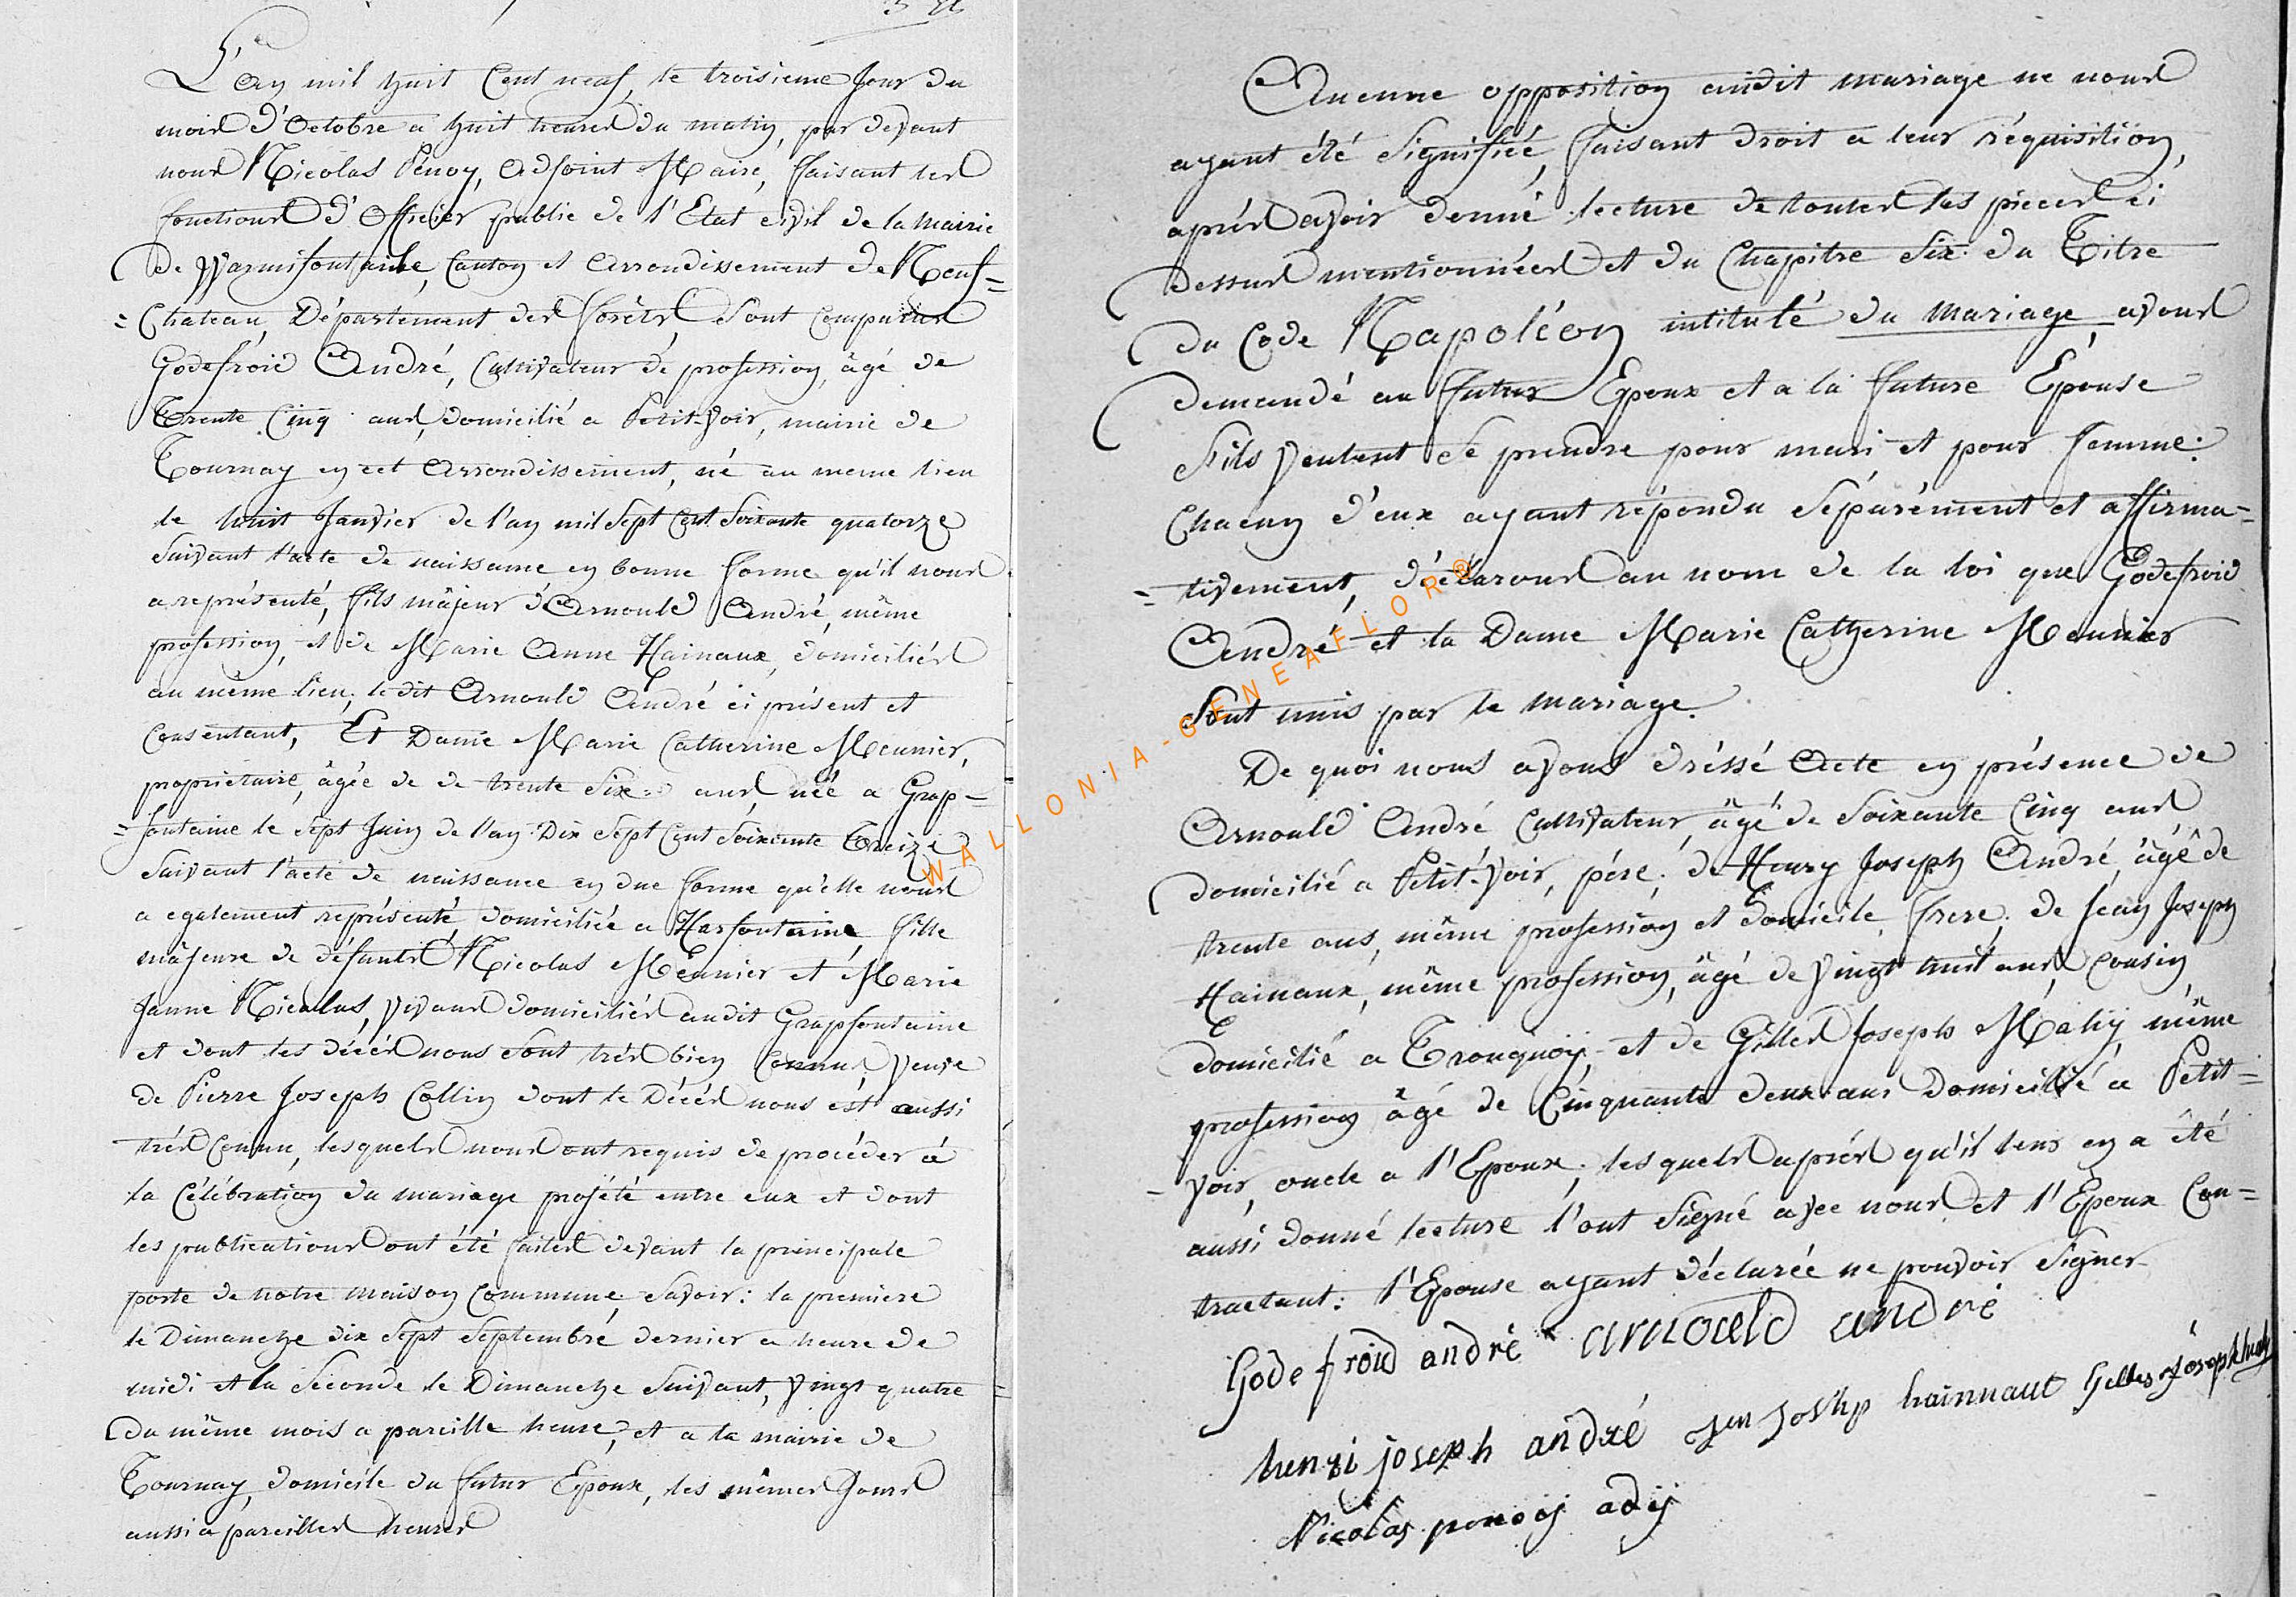 L'an mil huit Cent neuf, le troisieme Jour du
mois d'Octobre a huit heures du matin, par devant
nous Nicolas Pénoy, Adjoint Maire, faisant les
fonctions d'Officier public de l'Etat civil de la Mairie
de Warmifontaine, Canton et Arrondissement de Neuf=
=Chateau, Département des forêts, Sont comparus
Godefroid André, Cultivateur de profession, âgé de
Trente Cinq ans, domicilié a Petit-Voir, mairie de
Tournay en cet Arrondissement, né au meme lieu
le huit Janvier de l'an mil Sept Cent Soixante quatorze
Suivant l'acte de naissance en bonne forme qu'il nous
a représenté, fils majeur d'Arnould André, même
profession, et de Marie Anne Hainaux, domiciliés
au même lieu, le dit Arnould André ci présent et
Consentant, Et Dame Marie Catherine Meunier,
propriétaire, âgée de de trente Six ans, née a Grap-
=fontaine le Sept Juin de l'an Dix Sept Cent Soixante Treize
Suivant l'acte de naissance en due forme qu'elle nous
a egalement représenté, domiciliée a Harfontaine fille
majeure de défunts Nicolas Meunier et Marie
Janne Nicolas, vivans domiciliés audit Grapfontaine
et dont les décés nous Sont trés bien Connus, veuve
de Pierre Joseph Collin dont le Décés nous est aussi
trés Connu, lesquels nous ont requis de procéder à
la Célébration du mariage projété entre eux et dont
les publications ont été faites devant la principale
porte de notre maison Commune, Savoir: la premiere
le Dimanche dix Sept Septembre dernier a heure de
midi et la Seconde le Dimanche Suivant, vingt quatre
du même mois a pareille heure, et a la mairie de
Tournay, domicile du futur Epoux, les mêmes Jours
aussi a pareilles heures
Aucunne opposition audit mariage ne nous
ayant été Signifiée, faisant droit a leur réquisition,
aprés avoir donné lecture de toutes les pieces ci
dessus mentionnées et du Chapitre Six du Titre
du Code Napoléon intitulé du Mariage, avons
demandé au futur Epoux et a la future Epouse
S'ils veulent Se prendre pour mari et pour femme:
Chacun d'eux ayant répondu Séparément et affirma=
=tivement, déclarons au nom de la loi que Godefroid
André et la Dame Marie Catherine Meunier
Sont unis par le mariage.
De quoi nous avons dréssé Acte en présence de
Arnould André Cultivateur, âgé de Soixante Cinq ans
domicilié a Petit-Voir, pére; de Henry Joseph André, âgé de
trente ans, même profession et domicile, frere; de Jean Joseph
Hainaux, même profession, âgé de vingt huit ans, cousin,
domicilié a Tronquoy, et de Gilles Joseph Mahy, même
profession âgé de Cinquante deux ans Domicilié a Petit=
-Voir, oncle a l'Epoux; lesquels aprés qu'il leur en a été
aussi donné lecture l'ont Signé avec nous et l'Epoux Con=
tractant: l'Epouse ayant déclarée ne pouvoir Signer
Godefroid andré arnould andré
henri joseph andré jen joshp hainnaut Gelles
Nicolas penoy adj
WALLONIA-GENEAFLOR®